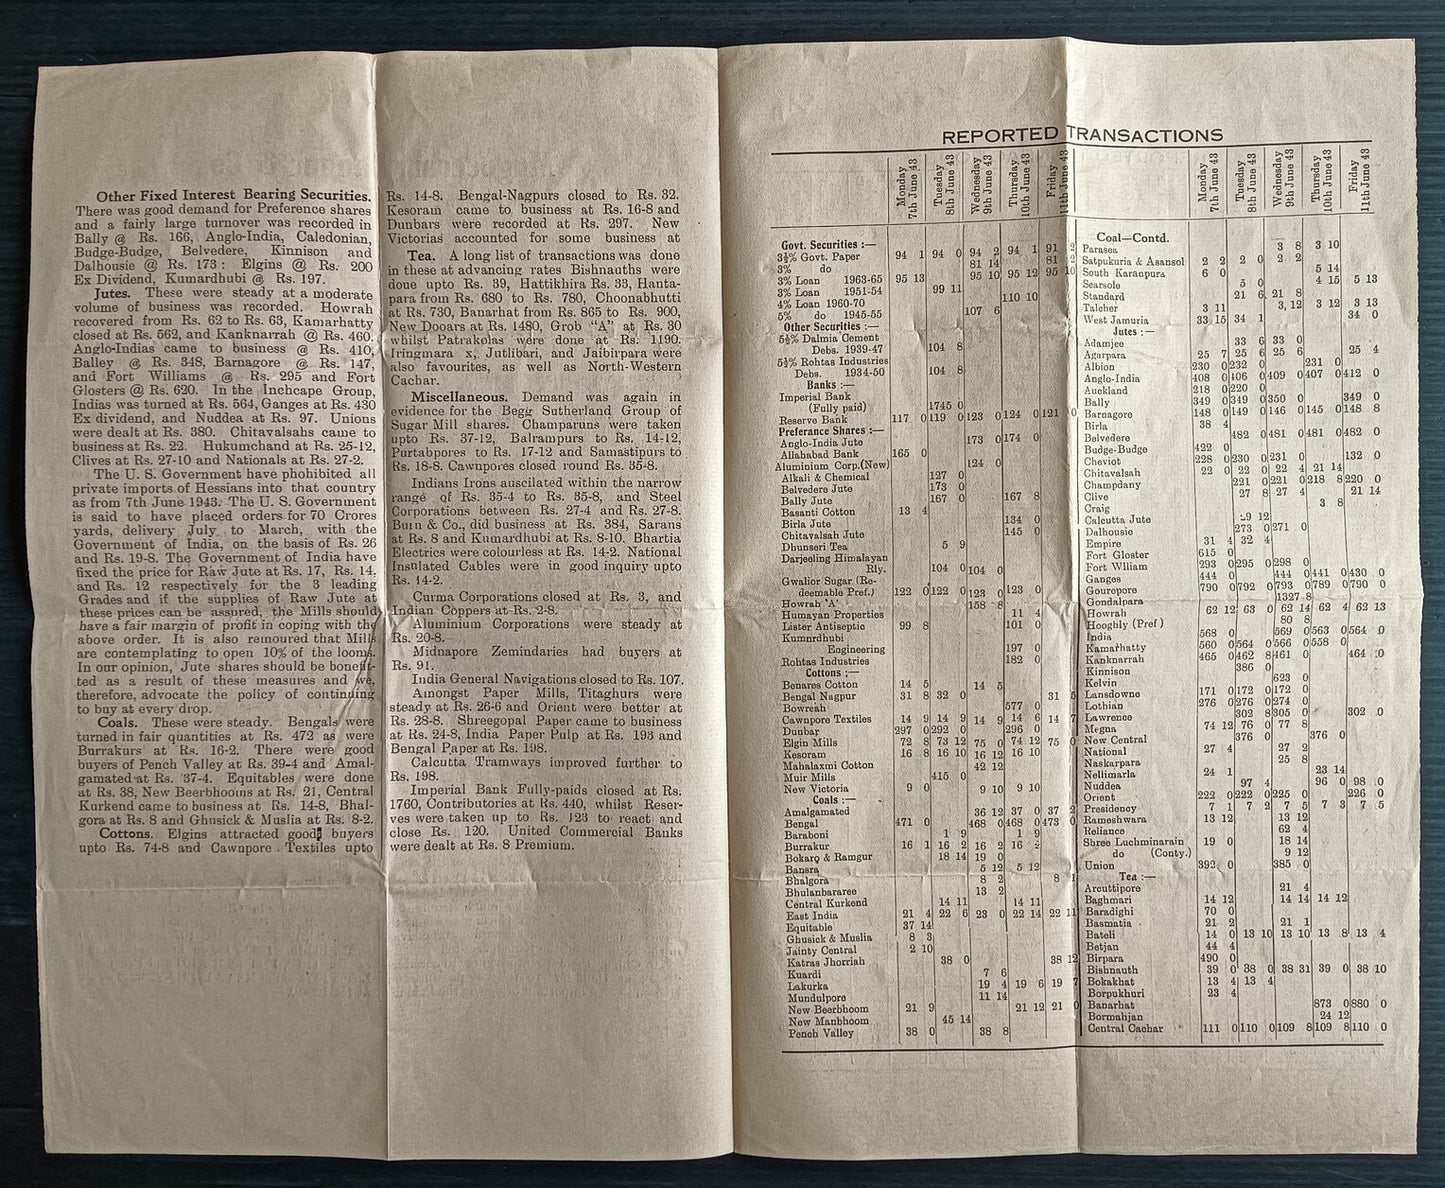 Other Fixed Interest Bearing Securities.
There was good demand for Preference shares
and a fairly large turnover was recorded in
Bally @ Rs. 166, Anglo-India, Caledonian,
Budge-Budge, Belvedere, Kinnison and
Dalhousie @ Rs. 173 : Elgins @ Rs. 200
Ex Dividend, Kumardhubi @ Rs. 197.
Jutes. These were steady at a moderate
volume of business was recorded. Howrah
recovered from Rs. 62 to Rs. 63, Kamarhatty
closed at Rs. 562, and Kanknarrah @ Rs. 460.
Anglo-Indias came to business @ Rs. 410,
Balley @ Rs. 348, Barnagore @ Rs. 147,
and Fort Williams @ Rs. 295 and Fort
Glosters @ Rs. 620. In the Inchcape Group,
Indias was turned at Rs. 564, Ganges at Rs. 430
Ex dividend, and Nuddea at Rs. 97. Unions
were dealt at Rs. 380. Chitavalsahs came to
business at Rs. 22. Hukumchand at Rs. 25-12,
Clives at Rs. 27-10 and Nationals at Rs. 27-2.
The U. S. Government have phohibited all
private imports of Hessians into that country
as from 7th June 1943. The U. S. Government
is said to have placed orders for 70 Crores
yards, delivery July to March, with the
Government of India, on the basis of Rs. 26
and Rs. 19-8. The Government of India have
fixed the price for Raw Jute at Rs. 17, Rs. 14,
and Rs. 12 respectively for the 3 leading
Grades and if the supplies of Raw Jute at
these prices can be assured, the Mills should
have a fair margin of profit in coping with the
above order. It is also remoured that Mills
are contemplating to open 10% of the looms.
In our opinion, Jute shares should be benefit-
ted as a result of these measures and we,
therefore, advocate the policy of continuing
to buy at every drop.
Coals. These were steady. Bengals were
turned in fair quantities at Rs. 472 as were
Burrakurs at Rs. 16-2. There were good
buyers of Pench Valley at Rs. 39-4 and Amal-
gamated at Rs. 37-4. Equitables were done
at Rs. 38, New Beerbhooms at Rs. 21, Central
Kurkend came to business at Rs. 14-8, Bhal-
gora at Rs. 8 and Ghusick & Muslia at Rs. 8-2.
Cottons. Elgins attracted good buyers
upto Rs. 74-8 and Cawnpore Textiles upto
Rs. 14-8. Bengal-Nagpurs closed to Rs. 32.
Kesoram came to business at Rs. 16-8 and
Dunbars were recorded at Rs. 297. New
Victorias accounted for some business at
Tea. A long list of transactions was done
in these at advancing rates Bishnauths were
done upto Rs. 39, Hattikhira Rs. 33, Hanta-
para from Rs. 680 to Rs. 780, Choonabhutti
at Rs. 730, Banarhat from Rs. 865 to Rs. 900,
New Dooars at Rs. 1480, Grob "A" at Rs. 30
whilst Patrakolas were done at Rs. 1190.
Iringmara x, Jutlibari, and Jaibirpara were
also favourites, as well as North-Western
Cachar.
Miscellaneous. Demand was again in
evidence for the Begg Sutherland Group of
Sugar Mill shares. Champaruns were taken
upto Rs. 37-12, Balrampurs to Rs. 14-12,
Purtabpores to Rs. 17-12 and Samastipurs to
Rs. 18-8. Cawnpores closed round Rs. 35-8.
Indians Irons auscilated within the narrow
range of Rs. 35-4 to Rs. 35-8, and Steel
Corporations between Rs. 27-4 and Rs. 27-8.
Burn & Co., did business at Rs. 384, Sarans
at Rs. 8 and Kumardhubi at Rs. 8-10. Bhartia
Electrics were colourless at Rs. 14-2. National
Insulated Cables were in good inquiry upto
Rs. 14-2.
Curma Corporations closed at Rs. 3, and
Indian Coppers at Rs. 2-8.
Aluminium Corporations were steady at
Rs. 20-8.
Midnapore Zemindaries had buyers at
Rs. 91.
India General Navigations closed to Rs. 107.
Amongst Paper Mills, Titaghurs were
steady at Rs. 26-6 and Orient were better at
Rs. 28-8. Shreegopal Paper came to business
at Rs. 24-8, India Paper Pulp at Rs. 193 and
Bengal Paper at Rs. 198.
Calcutta Tramways improved further to
Rs. 198.
Imperial Bank Fully-paids closed at Rs.
1760, Contributories at Rs. 440, whilst Reser-
ves were taken up to Rs. 123 to react and
close Rs. 120. United Commercial Banks
were dealt at Rs. 8 Premium.
REPORTED TRANSACTIONS
Monday 7th June 43
Tuesday 8th June 43
Wednesday 9th June 43
Thursday 10th June 43
Friday 11th June 43
Govt. Securities :—
3½% Govt. Paper 94 1 94 0 94 2 94 1 91 2
3% do 81 14 81 2
3% Loan 1963-65 95 13 95 10 95 12 95 10
3% Loan 1951-54 99 11
4% Loan 1960-70 110 10
5% do 1945-55 107 6
Other Securities :—
5½% Dalmia Cement
Debs. 1939-47 104 8
5½% Rohtas Industries
Debs. 1934-50 104 8
Banks :—
Imperial Bank
(Fully paid) 1745 0
Reserve Bank 117 0 119 0 123 0 124 0 121 0
Preferance Shares :—
Anglo-India Jute 173 0 174 0
Allahabad Bank 165 0
Aluminium Corp.(New) 124 0
Alkali & Chemical 127 0
Belvedere Jute 173 0
Bally Jute 167 0 167 8
Basanti Cotton 13 4
Birla Jute 134 0
Chitavalsah Jute 145 0
Dhunseri Tea 5 9
Darjeeling Himalayan
Rly. 104 0 104 0
Gwalior Sugar (Re-
deemable Pref.) 122 0 122 0 123 0 123 0
Howrah 'A' 158 8
Humayan Properties 11 4
Lister Antiseptic 99 8 101 0
Kumardhubi
Engineering 197 0
Rohtas Industries 182 0
Cottons :—
Benares Cotton 14 5 14 5
Bengal Nagpur 31 8 32 0 31 5
Bowreah 577 0
Cawnpore Textiles 14 9 14 9 14 9 14 6 14 7
Dunbar 297 0 292 0 296 0
Elgin Mills 72 8 73 12 75 0 74 12 75 0
Kesoram 16 8 16 10 16 12 16 10
Mahalaxmi Cotton 42 12
Muir Mills 415 0
New Victoria 9 0 9 10 9 10
Coals :—
Amalgamated 36 12 37 0 37 2
Bengal 471 0 468 0 468 0 473 0
Baraboni 1 9 1 9
Burrakur 16 1 16 2 16 2 16 2
Bokaro & Ramgur 18 14 19 0
Bansra 5 12 5 12
Bhalgora 8 2 8 1
Bhulanbararee 13 2
Central Kurkend 14 11 14 11
East India 21 4 22 6 23 0 22 14 22 11
Equitable 37 14
Ghusick & Muslia 8 3
Jainty Central 2 10
Katras Jhorriah 38 0 38 12
Kuardi 7 6
Lakurka 19 4 19 6 19 7
Mundulpore 11 14
New Beerbhoom 21 9 21 12 21 0
New Manbhoom 45 14
Pench Valley 38 0 38 8
Monday 7th June 43
Tuesday 8th June 43
Wednesday 9th June 43
Thursday 10th June 43
Friday 11th June 43
Coal—Contd.
Parasea 3 8 3 10
Satpukuria & Asansol 2 2 2 0 2 2
South Karanpura 6 0 5 14
Searsole 5 0 4 15 5 13
Standard 21 6 21 8
Talcher 3 11 3 12 3 12 3 13
West Jamuria 33 15 34 1 34 0
Jutes :—
Adamjee 33 6 33 0
Agarpara 25 7 25 6 25 6 25 4
Albion 230 0 232 0 231 0
Anglo-India 408 0 406 0 409 0 407 0 412 0
Auckland 218 0 220 0
Bally 349 0 349 0 350 0 349 0
Barnagore 148 0 149 0 146 0 145 0 148 8
Birla 38 4
Belvedere 482 0 481 0 481 0 482 0
Budge-Budge 422 0
Cheviot 228 0 230 0 231 0 132 0
Chitavalsah 22 0 22 0 22 4 21 14
Champdany 221 0 221 0 218 8 220 0
Clive 27 8 27 4 21 14
Craig 3 8
Calcutta Jute 12
Dalhousie 273 0 271 0
Empire 31 4 32 4
Fort Gloster 615 0
Fort Wlliam 293 0 295 0 298 0
Ganges 444 0 444 0 441 0 430 0
Gourepore 790 0 792 0 793 0 789 0 790 0
Gondalpara 1327 8
Howrah 62 12 63 0 62 14 62 4 62 13
Hooghly (Pref) 80 8
India 568 0 569 0 563 0 564 0
Kamarhatty 560 0 564 0 566 0 558 0
Kanknarrah 465 0 462 8 461 0 464 0
Kinnison 386 0
Kelvin 623 0
Lansdowne 171 0 172 0 172 0
Lothian 276 0 276 0 274 0
Lawrence 302 8 305 0 302 0
Megna 74 12 76 0 77 8
New Central 376 0 376 0
National 27 4 27 2
Naskarpara 25 8
Nellimarla 24 1 23 14
Nuddea 97 4 96 0 98 0
Orient 222 0 222 0 225 0 226 0
Presidency 7 1 7 2 7 5 7 3 7 5
Rameshwara 13 12 13 12
Reliance 62 4
Shree Luchminarain 19 0 18 14
do (Conty.) 9 12
Union 392 0 385 0
Tea :—
Arcuttipore 21 4
Baghmari 14 12 14 14 14 12
Baradighi 70 0
Basmatia 21 2 21 1
Bateli 14 0 13 10 13 10 13 8 13 4
Betjan 44 4
Birpara 490 0
Bishnauth 39 0 38 0 38 31 39 0 38 10
Bokakhat 13 4 13 4
Borpukhuri 23 4
Banarhat 873 0 880 0
Bormahjan 24 12
Central Cachar 111 0 110 0 109 8 109 8 110 0